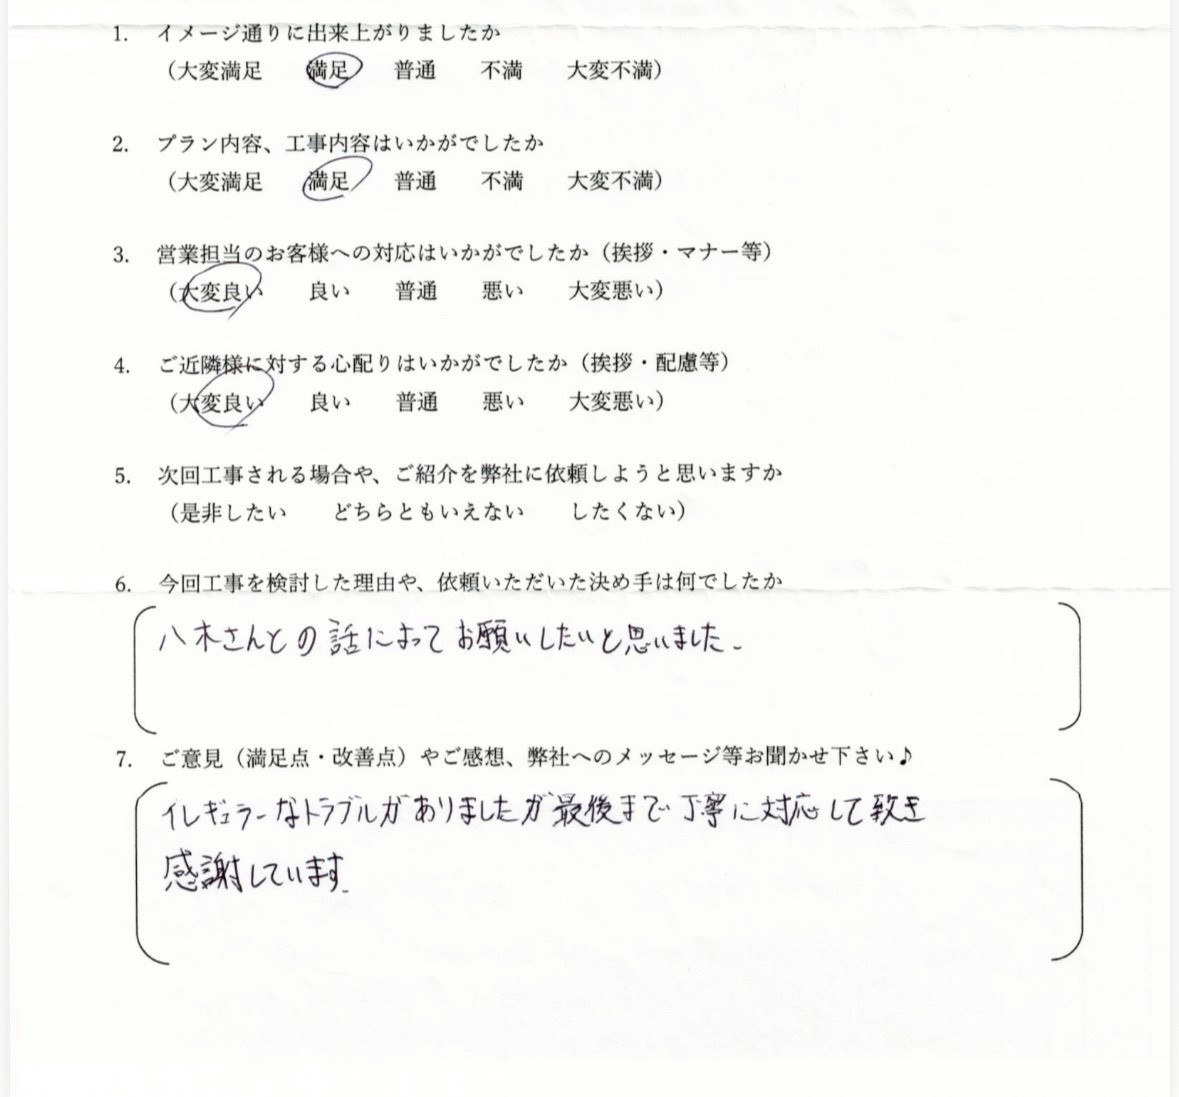 1. イメージ通りに出来上がりましたか
(大変満足 満足 普通 不満 大変不満)
2. プラン内容、工事内容はいかがでしたか
(大変満足 満足 普通 不満 大変不満)
3. 営業担当のお客様への対応はいかがでしたか(挨拶・マナー等)
(大変良い 良い 普通 悪い 大変悪い)
4. ご近隣様に対する心配りはいかがでしたか(挨拶・配慮等)
(大変良い 良い 普通 悪い 大変悪い)
5. 次回工事される場合や、ご紹介を弊社に依頼しようと思いますか
(是非したい どちらともいえない したくない)
6. 今回工事を検討した理由や、依頼いただいた決め手は何でしたか
八木さんとの話によってお願いしたいと思いました.
7. ご意見(満足点・改善点)やご感想、弊社へのメッセージ等お聞かせ下さい♪
イレギュラーなトラブルがありましたが最後まで丁寧に対応して致き
感謝しています.